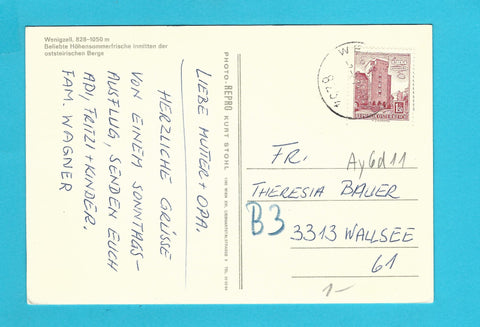 Wenigzell, 828-1050 m
Beliebte Höhensommerfrische inmitten der
oststeirischen Berge
LIEBE MUTTER + OPA.
HERZLICHE GRÜSSE
VON EINEM SONNTAGS-
AUSFLUG, SENDEN EUCH
API, TRITZI + KINDER.
FAM. WAGNER
PHOTO-REPRO KURT STOHL
8254
FR.
Ay6d11
THERESIA BAUER
B3
3313 WALLSEE
61
1-